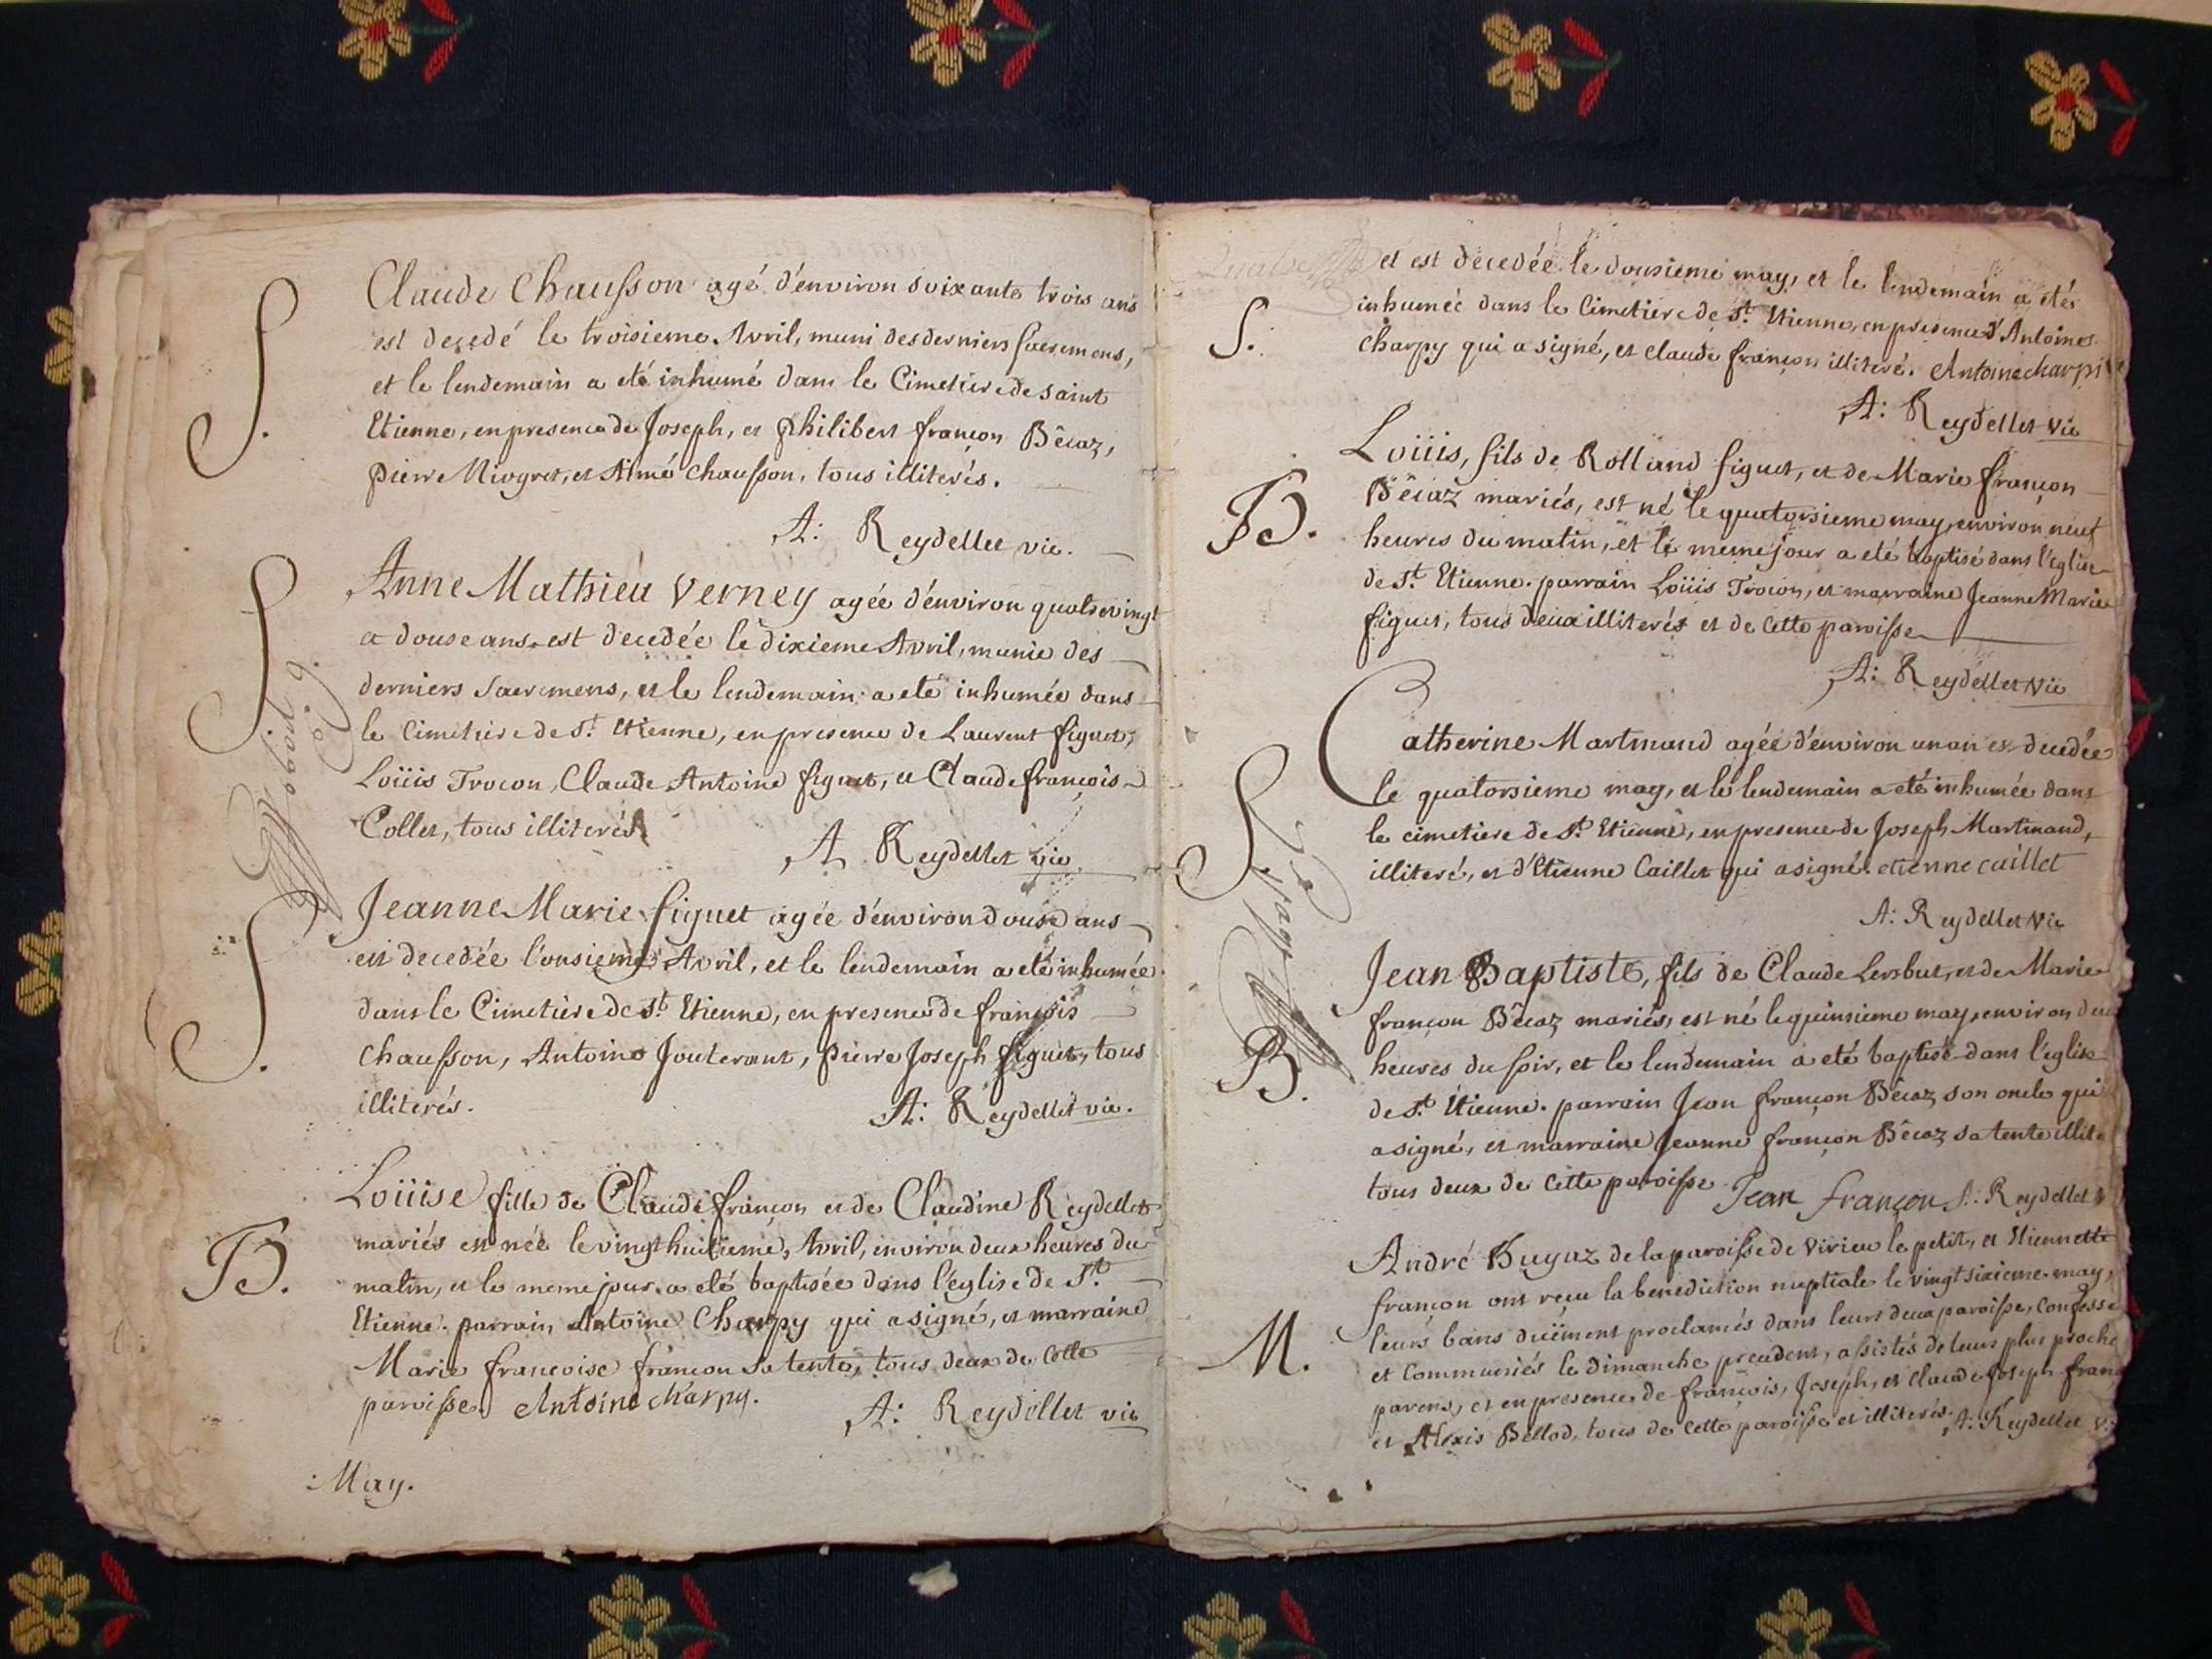 S.
Claude Chausson agé d'environ soixante trois ans
est decedé le troisieme Avril, muni des derniers sacremens,
et le lendemain a eté inhumé dans le Cimetiere de saint
Etienne, en presence de Joseph, et philibert françon Bêcaz,
pierre Miogret, et Aimé chausson, tous illiterés.
A: Reydellet vic.
S
Anne Mathieu Verney agée d'environ quatrevingt
et douse ans, est decedée le dixieme Avril, munie des
derniers sacremens, et le lendemain a eté inhumée dans
le Cimetiere de St. Etienne, en presence de Laurent figuet,
Loüis Trocon, Claude Antoine figuet, et Claude françois
Collet, tous illiterés
A Reydellet vic
S.
Jeanne Marie figuet agée d'environ douse ans
est decedée l'onsieme Avril, et le lendemain a eté inhumée
dans le Cimetiere de St. Etienne, en presence de françois
chausson, Antoine Jouterant, pierre Joseph figuet, tous
illiterés.
A: Reydellet vic.
B.
Loüise fille de Claude françon et de Claudine Reydellet
mariés est née le vingthuitieme Avril, environ deux heures du
matin, et le meme jour a eté baptisée dans l'église de St.
Etienne. parrain Antoine Charpy qui a signé, et marraine
Marie francoise françon sa tente, tous deux de cette
paroisse. Antoine charpy.
A: Reydellet vic
May.
et est decedée le dousieme may, et le lendemain a eté
S.
inhumée dans le Cimetiere de St. Etienne, en presence d'Antoine
charpy qui a signé, et claude françon illiteré. Antoine charpi
A: Reydellet vic
B.
Loüis, fils de Rolland figuet, et de Marie françon
Bêcaz mariés, est né le quatorsieme may, environ neuf
heures du matin, et le meme jour a eté baptisé dans l'église
de St. Etienne. parrain Loüis Trocon, et marraine Jeanne Marie
figuet, tous deux illiterés et de cette paroisse
A: Reydellet vic
S.
Catherine Martinand agée d'environ un an est decedée
le quatorsieme may, et le lendemain a eté inhumée dans
le cimetiere de St. Etienne, en presence de Joseph Martinand,
illiteré, et d'Etienne Caillet qui a signé. etienne caillet
A: Reydellet vic
B.
Jean Baptiste, fils de Claude et de Marie
françon Bêcaz mariés, est né le quinsieme may, environ
heures du soir, et le lendemain a eté baptisé dans l'église
de St. Etienne. parrain Jean françon Bêcaz son oncle qui
a signé, et marraine Jeanne françon Bêcaz sa tente
tous deux de cette paroisse. Jean françon A: Reydellet
M.
André Bugaz de la paroisse de Virieu le petit, et Etiennette
françon ont reçu la benediction nuptiale le vingtsixieme may,
leurs bans duëment proclamés dans leurs deux paroisse, confessé
et communiés le dimanche precedent, assistés de leurs plus proche
parens, et en presence de françois, Joseph, et claude Joseph
et Alexis Bellod, tous de cette paroisse et illiterés. A: Reydellet